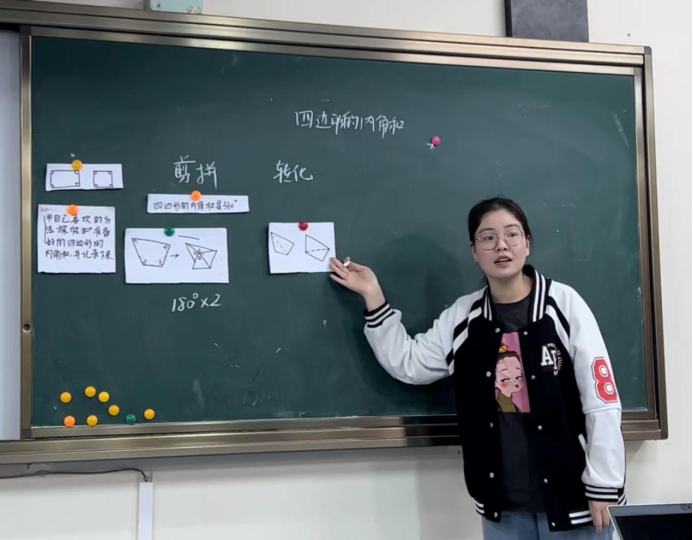 四边形的内角和
剪拼
转化
四边形的内角和是360°
用自己喜欢的方
法探究
准备
好的四边形的
内角和,并记录下来
180°×2
8